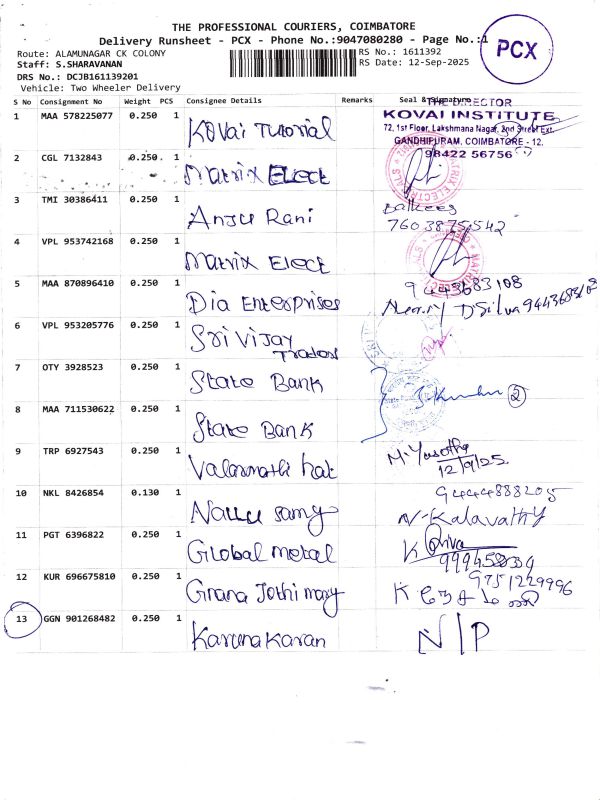 THE PROFESSIONAL COURIERS, COIMBATORE
Delivery Runsheet - PCX - Phone No.:9047080280 - Page No.:1
PCX
Route: ALAMUNAGAR CK COLONY
RS No.: 1611392
Staff: S.SHARAVANAN
RS Date: 12-Sep-2025
DRS No.: DCJB161139201
Vehicle: Two Wheeler Delivery
S No Consignment No Weight PCS Consignee Details Remarks Seal & Signature
THE DIRECTOR
KOVAI INSTITUTE
72, 1st Floor, Lakshmana Nagar, 2nd Street Ext.
GANDHIPURAM, COIMBATORE - 12.
98422 56756
1 MAA 578225077 0.250 1 Kovai Tutorial
2 CGL 7132843 0.250 1 Matrix Elect
3 TMI 30386411 0.250 1 Anju Rani
7603875542
4 VPL 953742168 0.250 1 Matrix Elect
5 MAA 870896410 0.250 1 Dia Enterprises
9443683108
D Silva 9443683108
6 VPL 953205776 0.250 1 Sri Vijay
Traders
7 OTY 3928523 0.250 1 State Bank
2
8 MAA 711530622 0.250 1 State Bank
9 TRP 6927543 0.250 1
12/9/25
10 NKL 8426854 0.130 1
9444888205
N-Kalavathy
11 PGT 6396822 0.250 1 Global metal
12 KUR 696675810 0.250 1 Gnana Jothi
9751229996
13 GGN 901268482 0.250 1 Karunakaran N/P